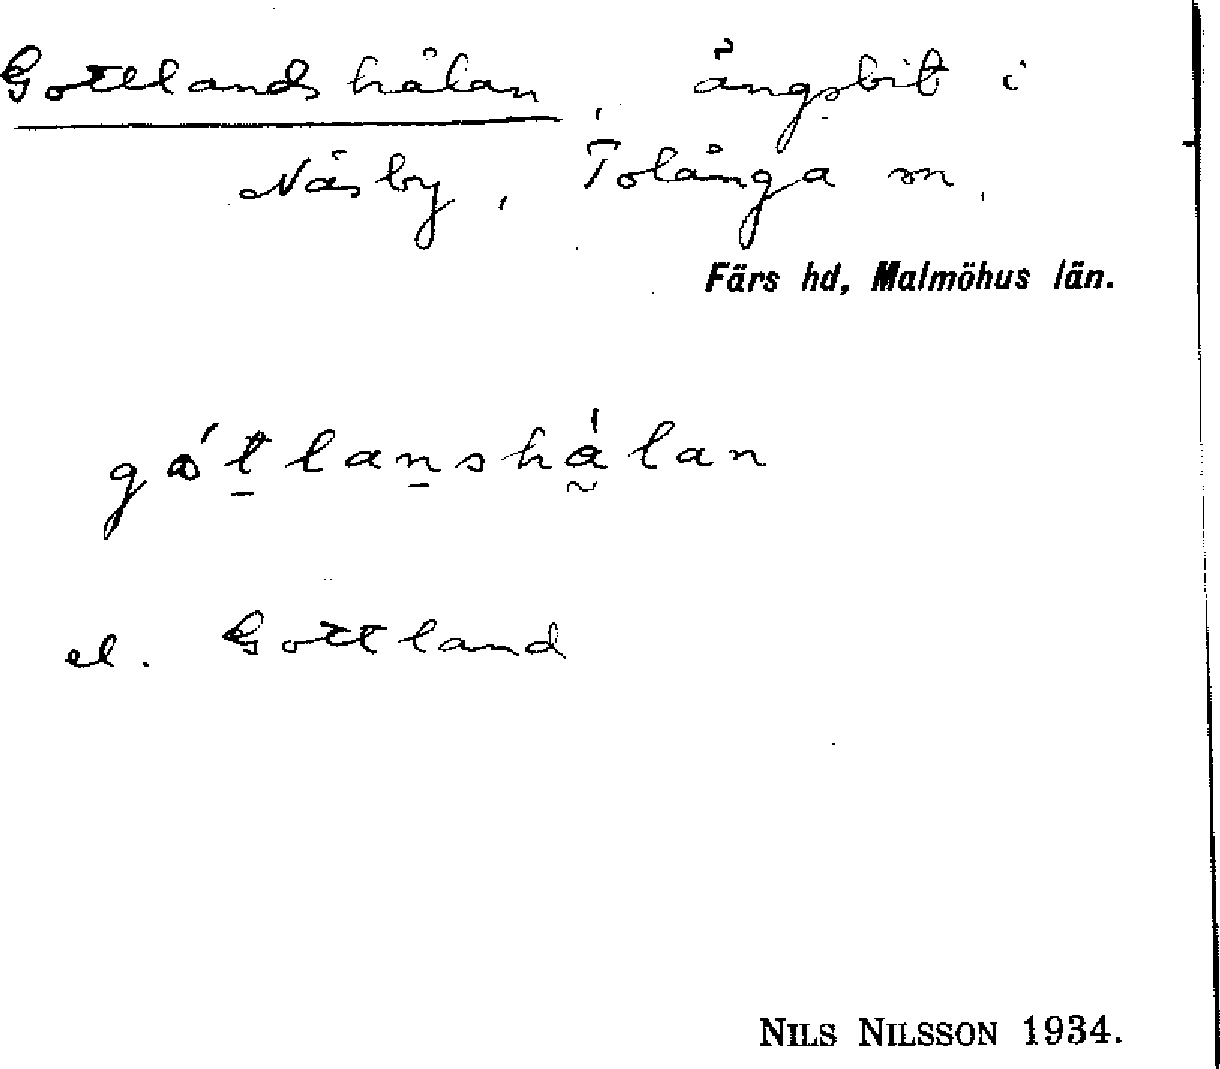 Gottlandshålan, ängsbit i
Näsby, Tolånga sn.
Färs hd, Malmöhus län.
gótlanshålan
el. Gottland
NILS NILSSON 1934.